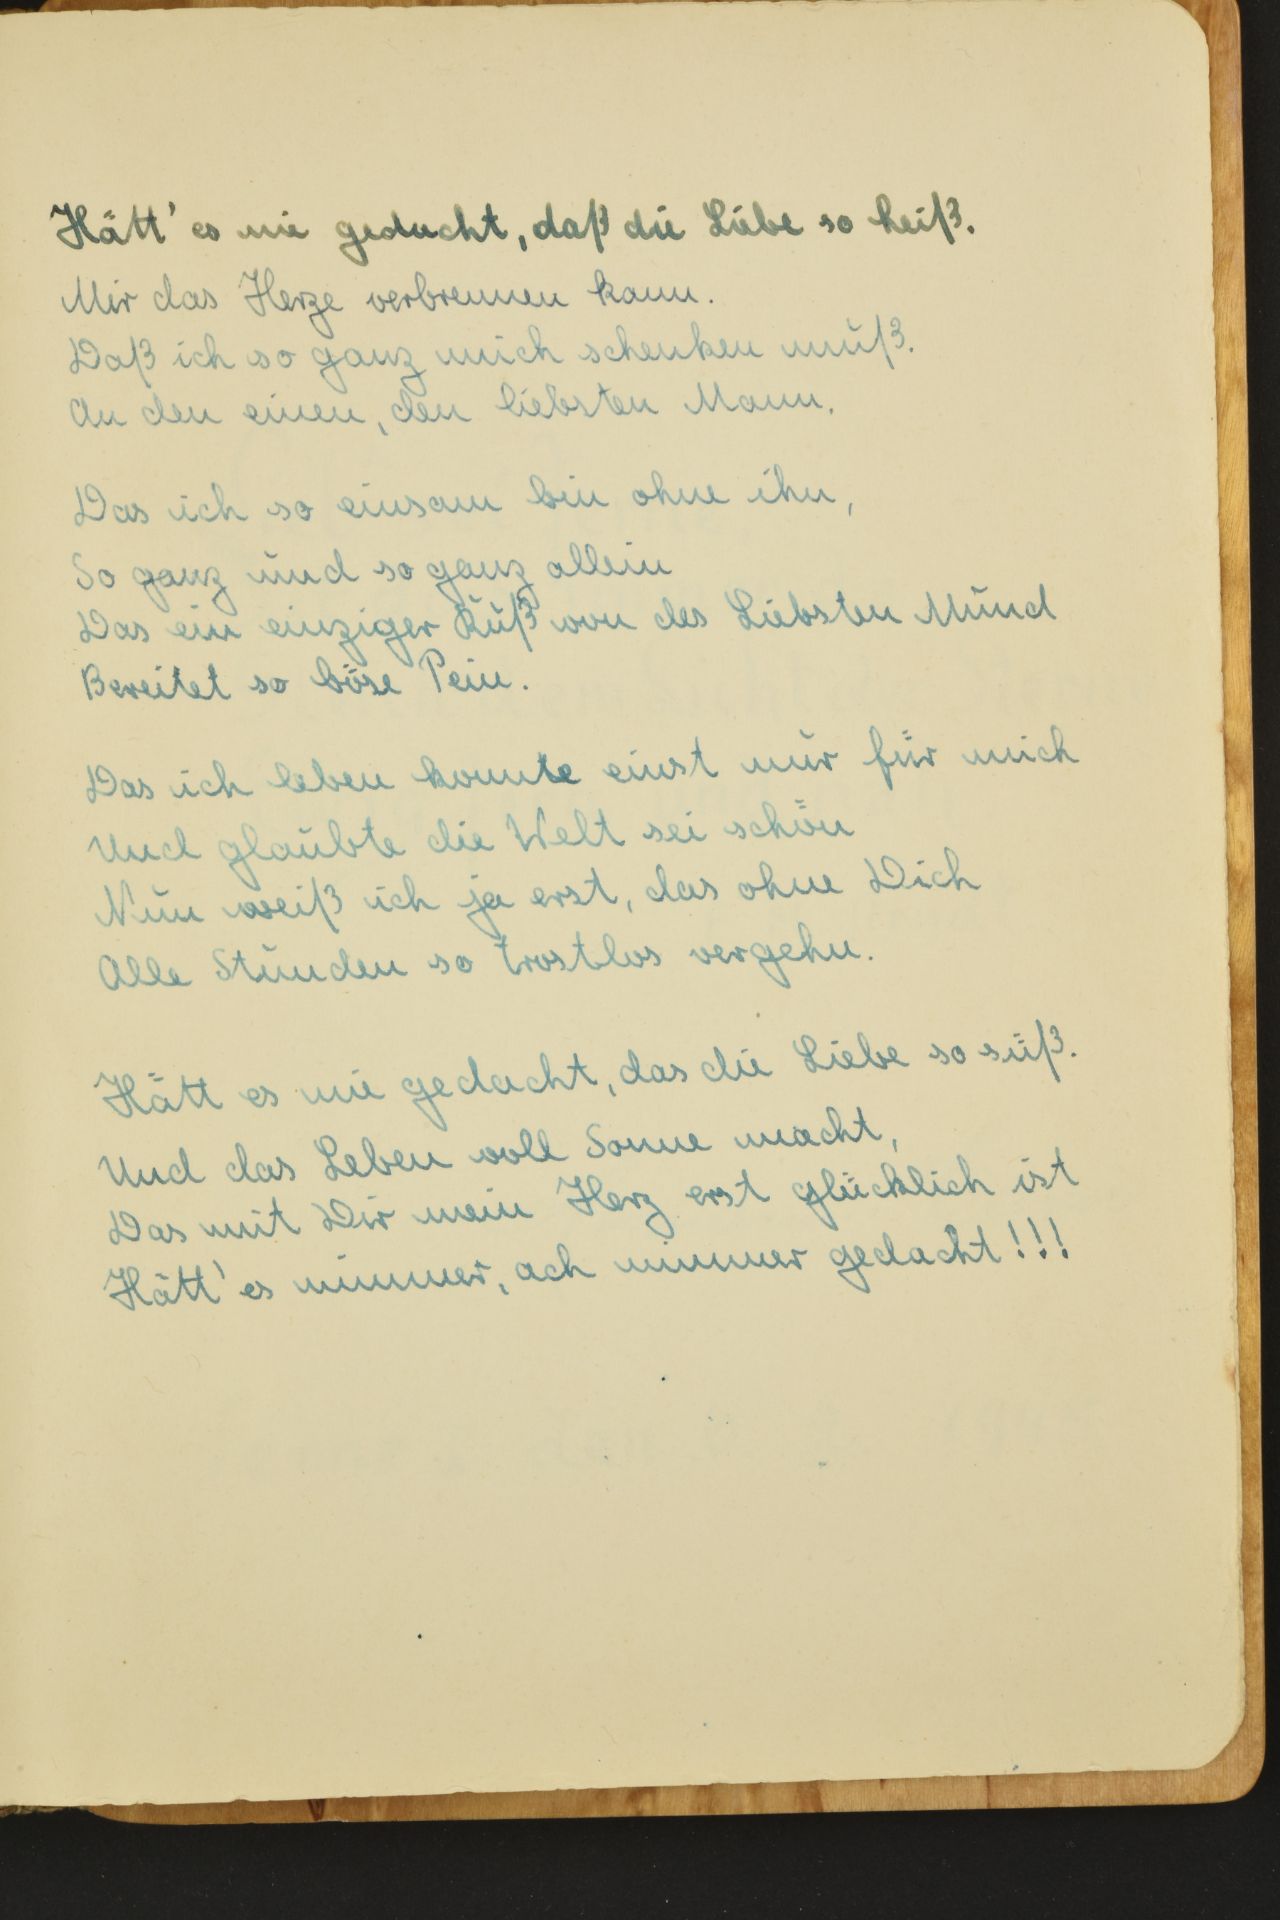 Hätt' es nie gedacht, daß die Liebe so heiß.
Mir das Herze verbrennen kann.
Daß ich so ganz mich schenken muß.
An den einen, den liebsten Mann.
Das ich so einsam bin ohne ihn,
So ganz und so ganz allein
Das ein einziger Kuß von des Liebsten Mund
Bereitet so böse Pein.
Das ich leben konnte einst nur für mich
Und glaubte die Welt sei schön
Nun weiß ich ja erst, das ohne Dich
Alle Stunden so trostlos vergehn.
Hätt es nie gedacht, das die Liebe so süß.
Und das Leben voll Sonne macht,
Das mit Dir mein Herz erst glücklich ist
Hätt' es nimmer, ach nimmer gedacht!!!